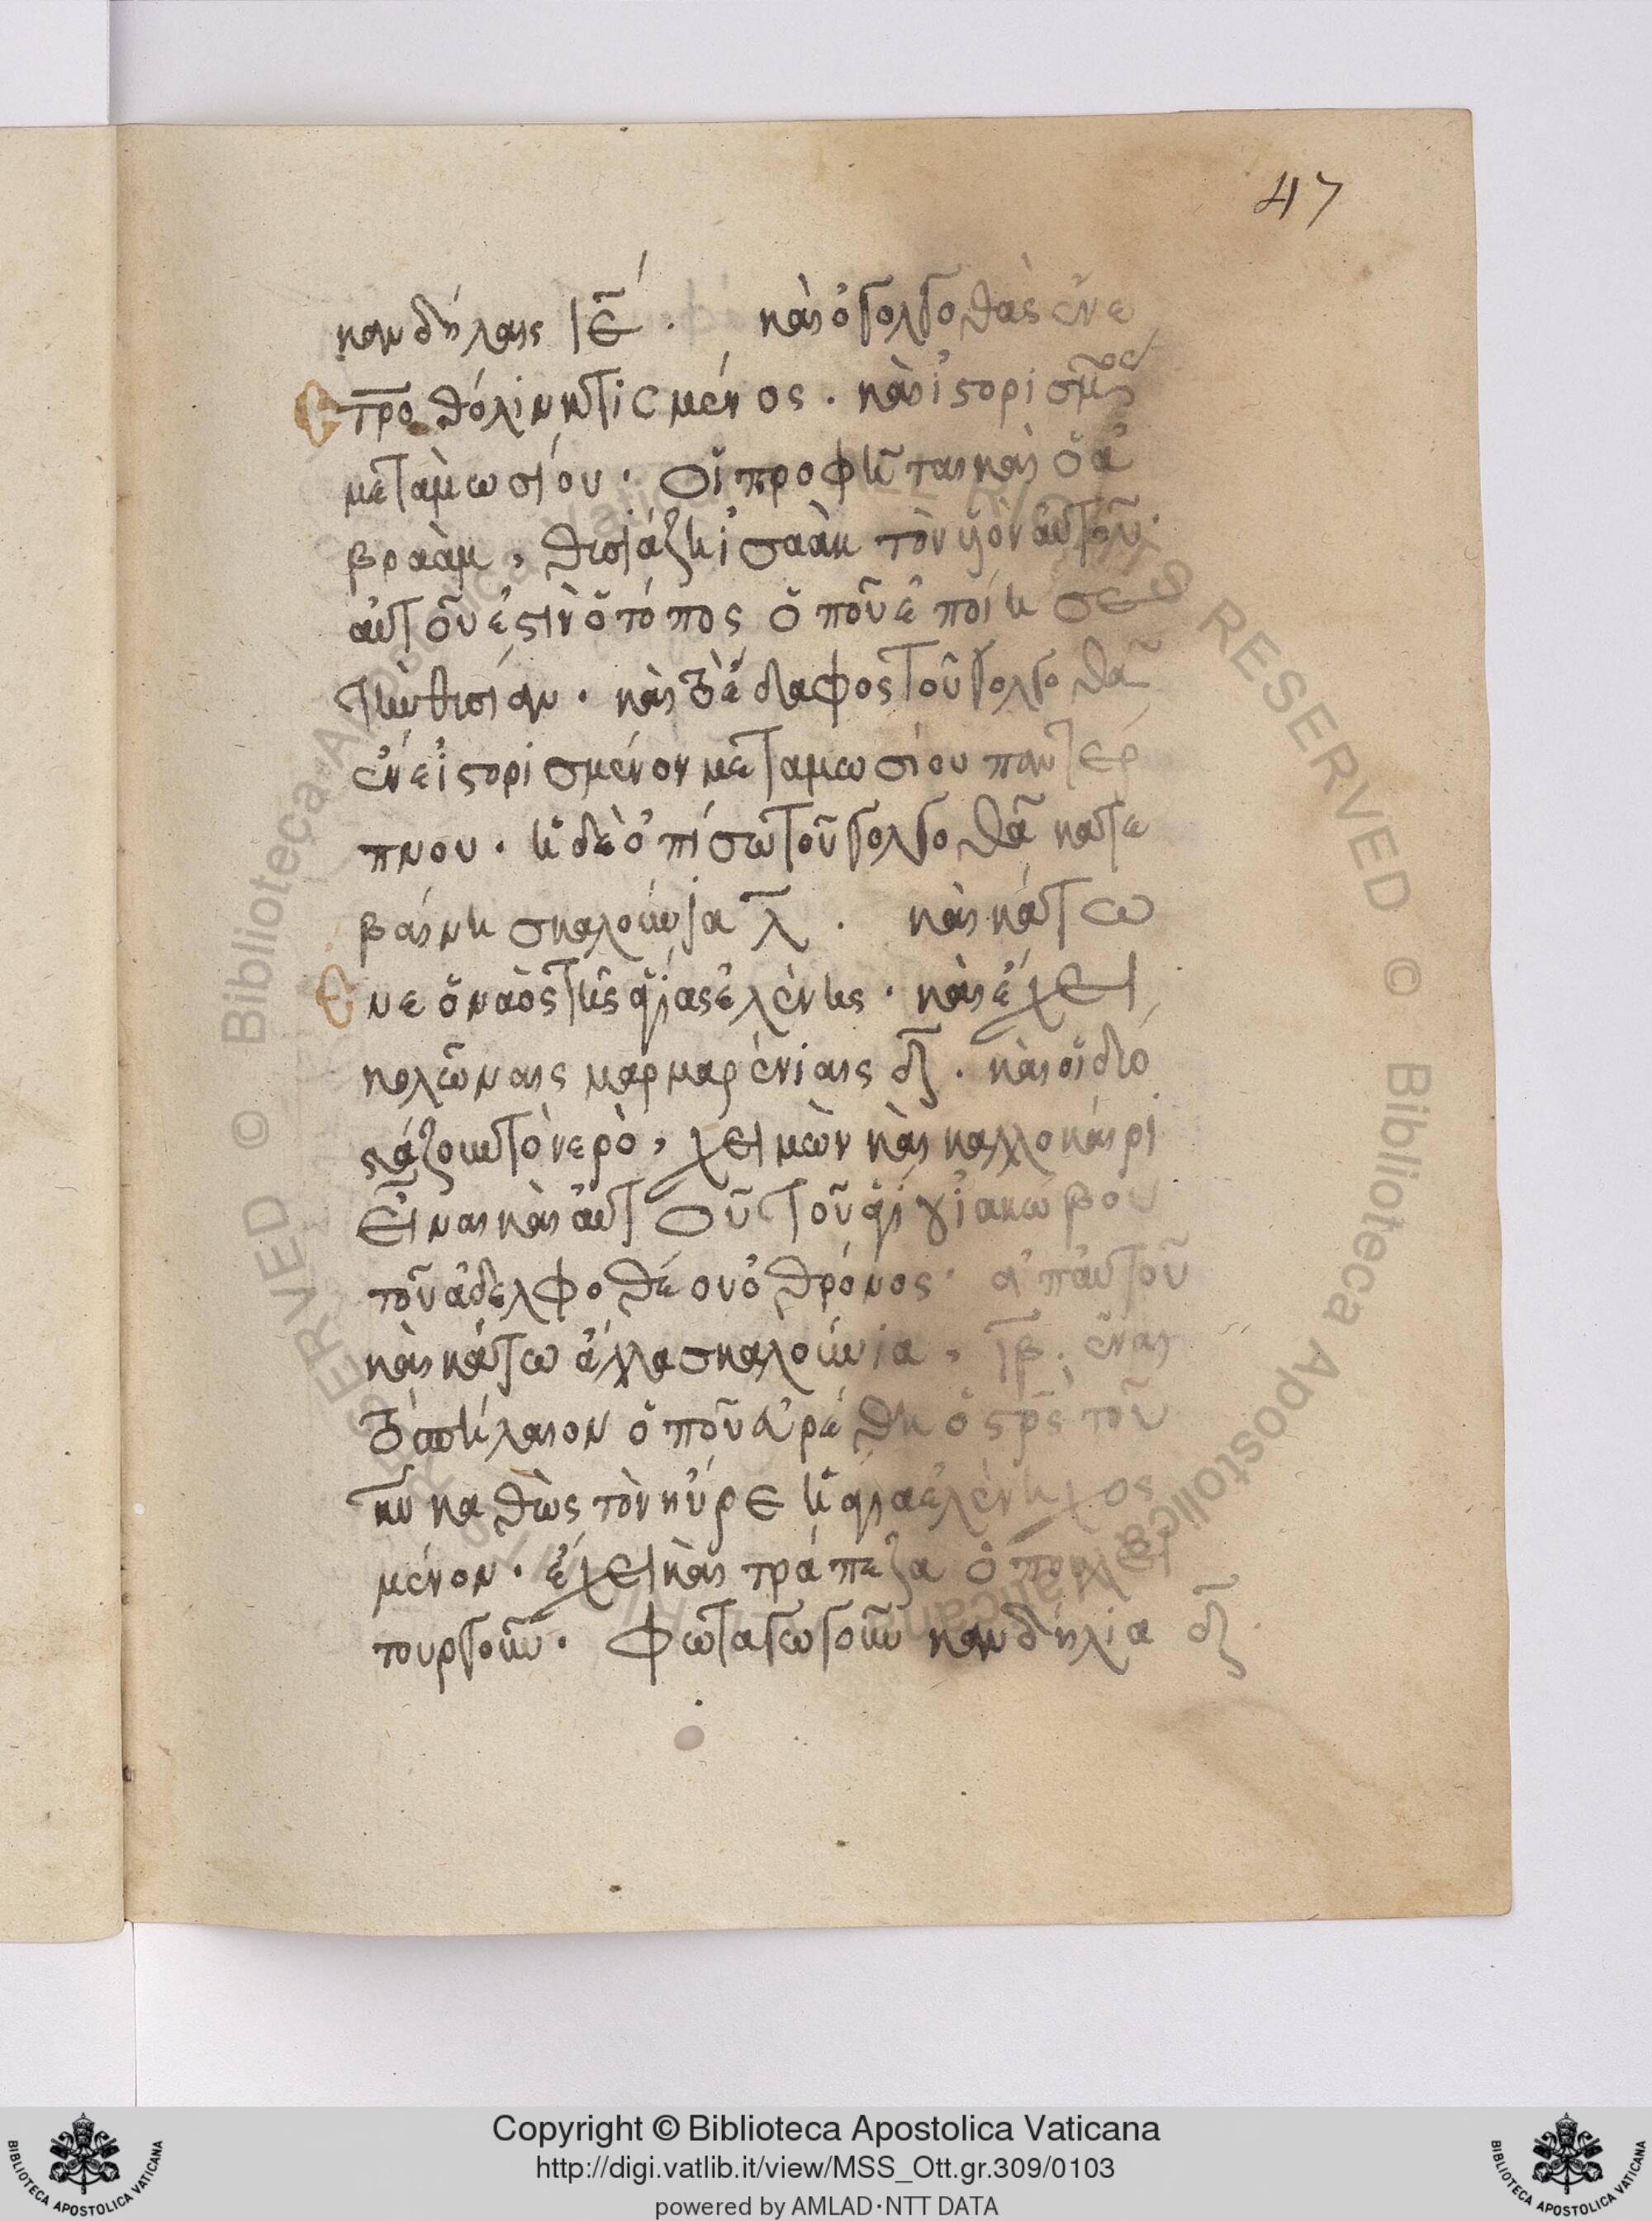 47
κανδήλαις ιε̄. καὶ ὁ γολγοθὰς ἔνε
τρο θόλι κτισμένος. καὶ ἱστορισμ̃ος
μεταμωσίου. οἱ προφῆται καὶ ὁ ἀ
βραάμ, θισιάζη ἰσαὰκ τὸν υἱὸν αὐτοῦ.
αὐτοῦ ἐστὶν ὁ τόπος ὁποῦ ἐποίησε
τὴν θισίαν. καὶ τὸ ἔδαφος τοῦ γολγοθᾶ
ἔνε ἱστορισμένον μεταμωσίου παντερ
πνου. ἡ δὲ ὀπίσω τοῦ γολγοθᾶ κατε
βαίνη σκαλούνια λ̄. καὶ κάτω
Ενε ὁ ναὸς τῆς ἁγίας ἑλένης. καὶ ἔχει
κολώναις μαρμαρένιαις δ̄. καὶ οἱ διό
στάζουν τὸ νερὸ, χειμὼν καὶ καλλοκαίρι
Εἶναι καὶ αὐτοῦ τοῦ ἁγίου ἰακώβου
τοῦ ἀδελφοθέου ὁ θρόνος. ἀπαυτοῦ
καὶ κάτω ἄλλα σκαλούνια, ιβ̄. ἔναι
τὸ σπήλαιον ὁποῦ εὑρέθη ὁ στρ̃ς τοῦ
κυ̃ καθὼς τὸν ηὗρε ἡ ἁγία ἑλένη χος
μένον. ἔχει καὶ τράπεζα ὁποῦ λει
τουργοῦν. Φωταγωγοῦν κανδήλια δ̄.
Copyright © Biblioteca Apostolica Vaticana
http://digi.vatlib.it/view/MSS_Ott.gr.309/0103
powered by AMLAD·NTT DATA
BIBLIOTECA APOSTOLICA VATICANA
BIBLIOTECA APOSTOLICA VATICANA